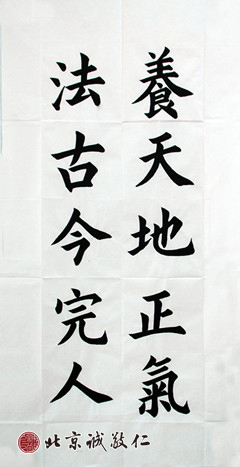 養天地正氣
法古今完人
北京誠敬仁